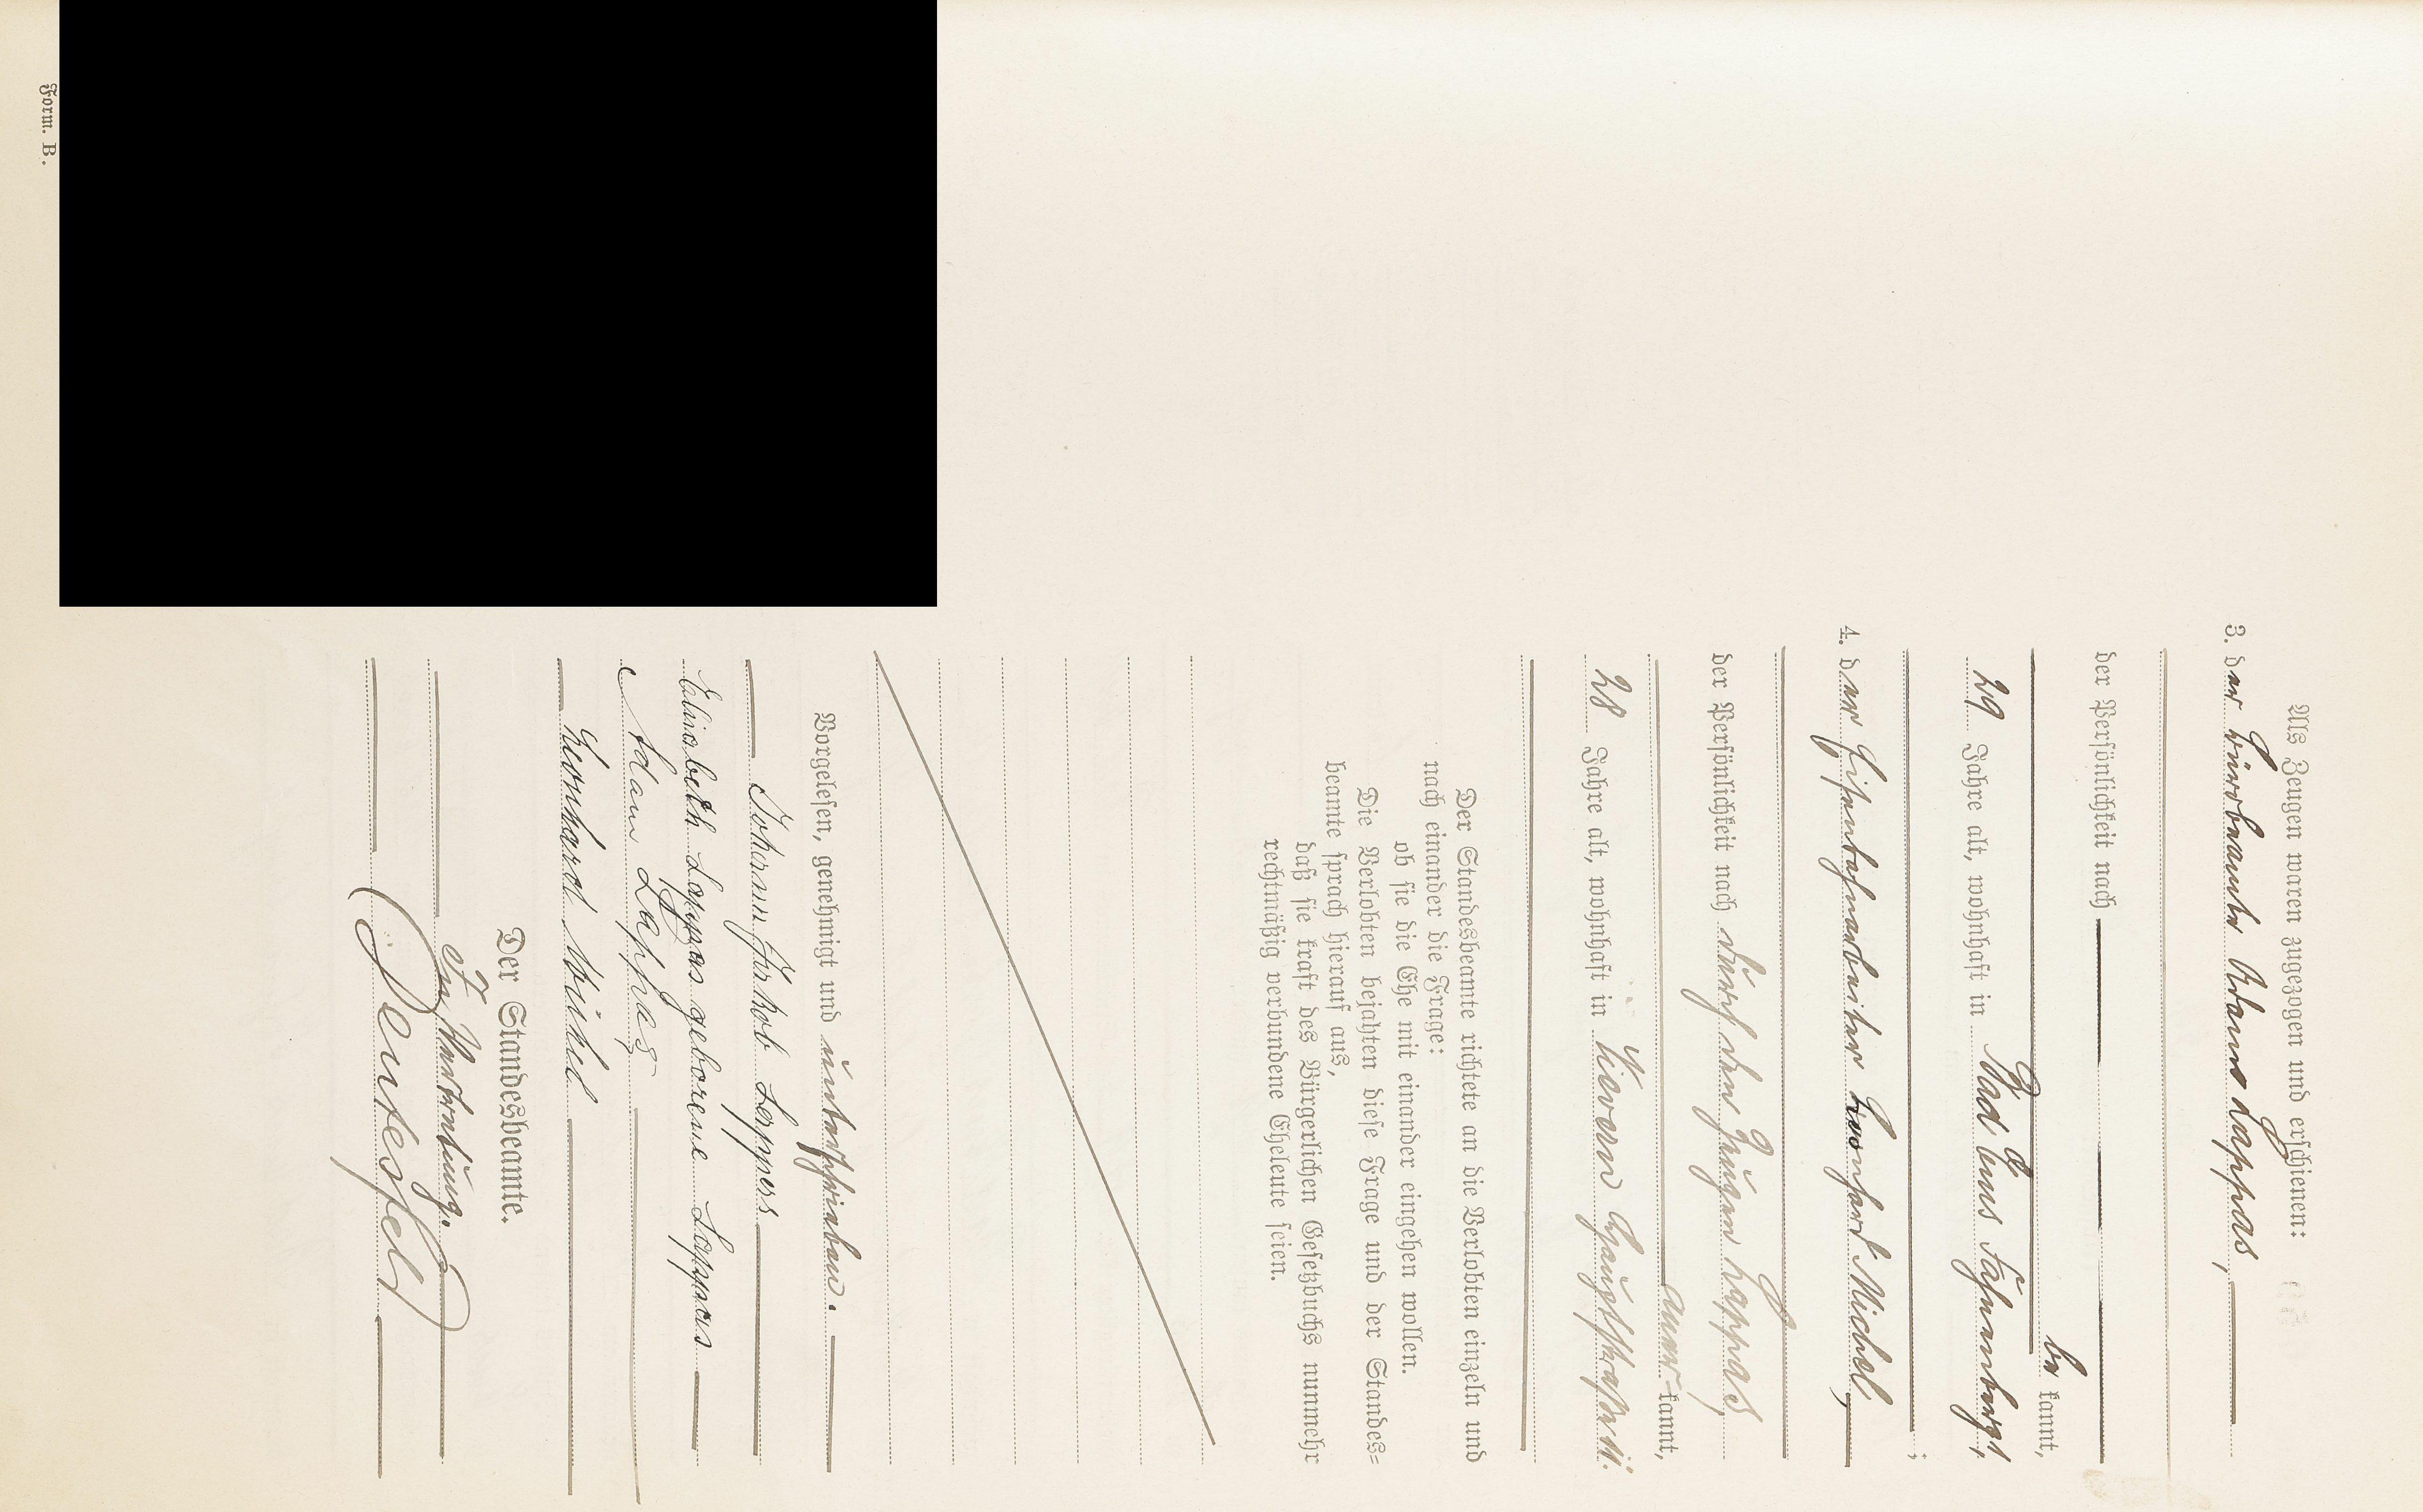 Als Zeugen waren zugezogen und erschienen:
3. der Adam Lappas,
der Persönlichkeit nach
be kannt,
29 Jahre alt, wohnhaft in
4. der Eisenbahnarbeiter Leonhard Michel,
;
der Persönlichkeit nach durch den Zeugen Lappas,
aner kannt,
28 Jahre alt, wohnhaft in
Der Standesbeamte richtete an die Verlobten einzeln und
nach einander die Frage:
ob sie die Ehe mit einander eingehen wollen.
Die Verlobten bejahten diese Frage und der Standes=
beamte sprach hierauf aus,
daß sie kraft des Bürgerlichen Gesetzbuchs nunmehr
rechtmäßig verbundene Eheleute seien.
Vorgelesen, genehmigt und unterschrieben.
Johann Jakob Lappas
Elisabeth Lappas geborene Lappas
Adam Lappas
Leonhard Michel
Der Standesbeamte.
In Vertretung.
Form. B.